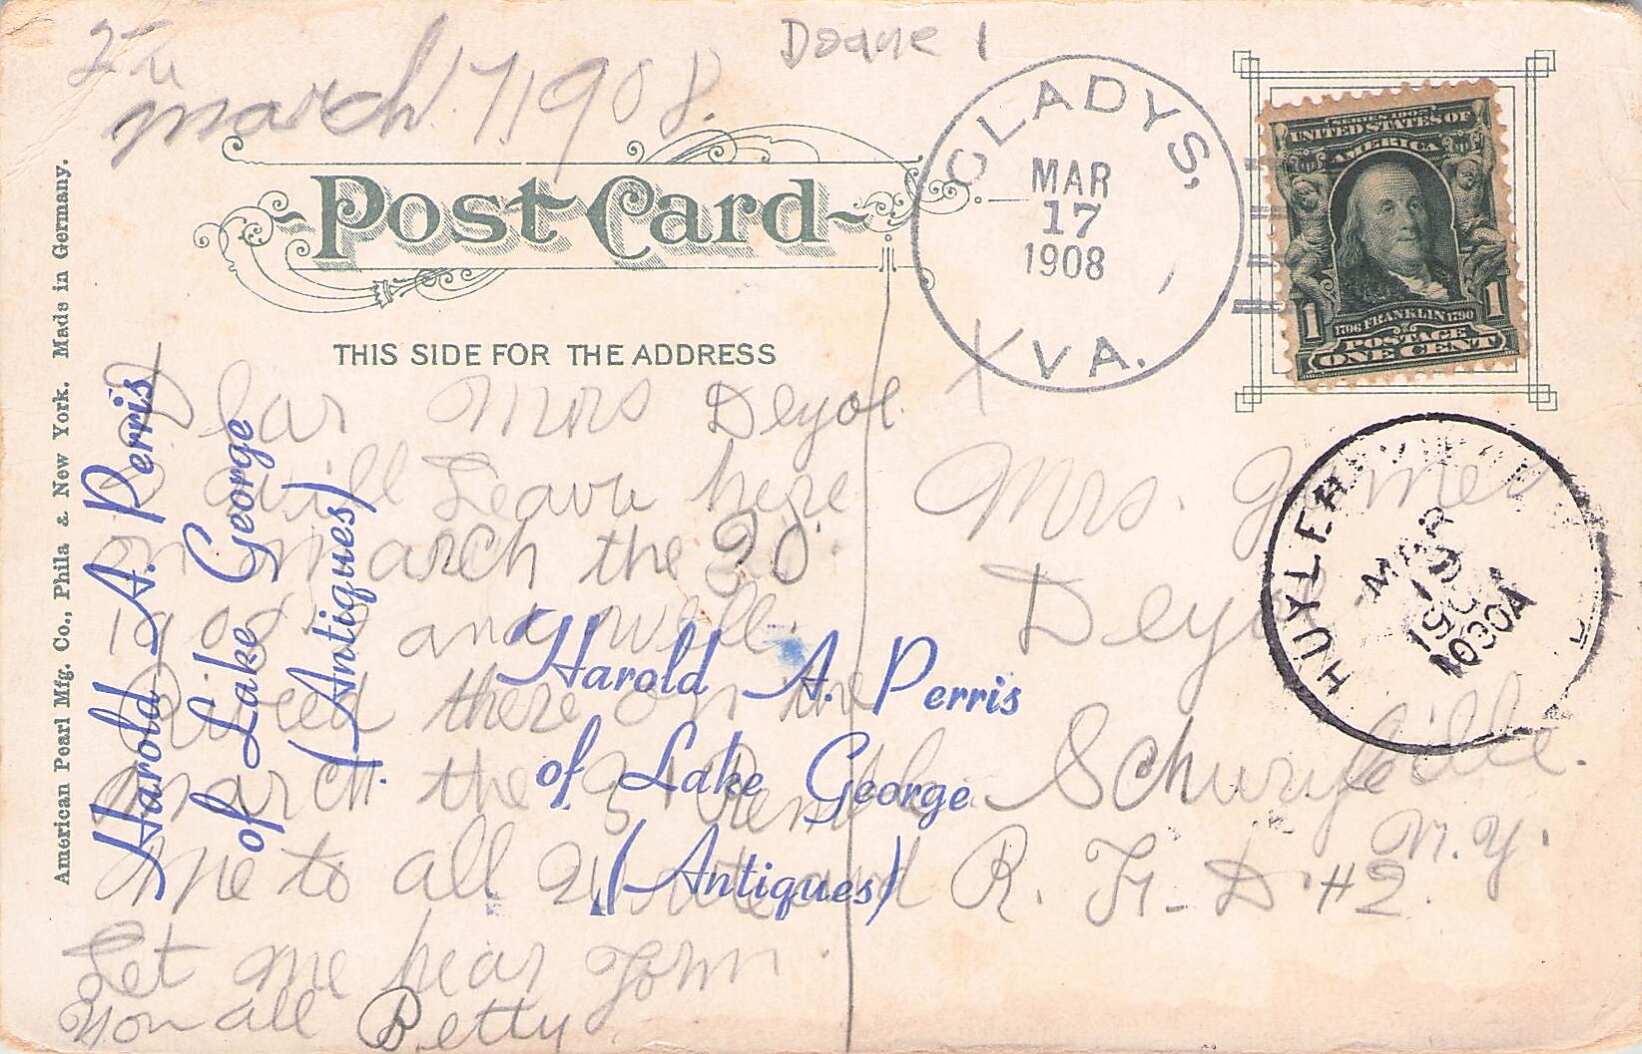 Doane 1
March 17 1908.
GLADYS,
MAR
17
1908
VA.
SERIES 1902
UNITED STATES OF
AMERICA
1 1
1706 FRANKLIN 1790
POSTAGE
ONE CENT
Post Card
THIS SIDE FOR THE ADDRESS
American Pearl Mfg. Co., Phila & New York. Made in Germany.
Dear Mrs Deyoe
I will Leave here
on march the 20
1908 and will
there on the
march the 21
me to all
Let me hear
you all Betty
Mrs. James
Deyoe
N.Y.
R. F. D #2.
HUYLER
MAR
19
1030A
Harold A. Perris
of Lake George
(Antiques)
Harold A. Perris
of Lake George
(Antiques)